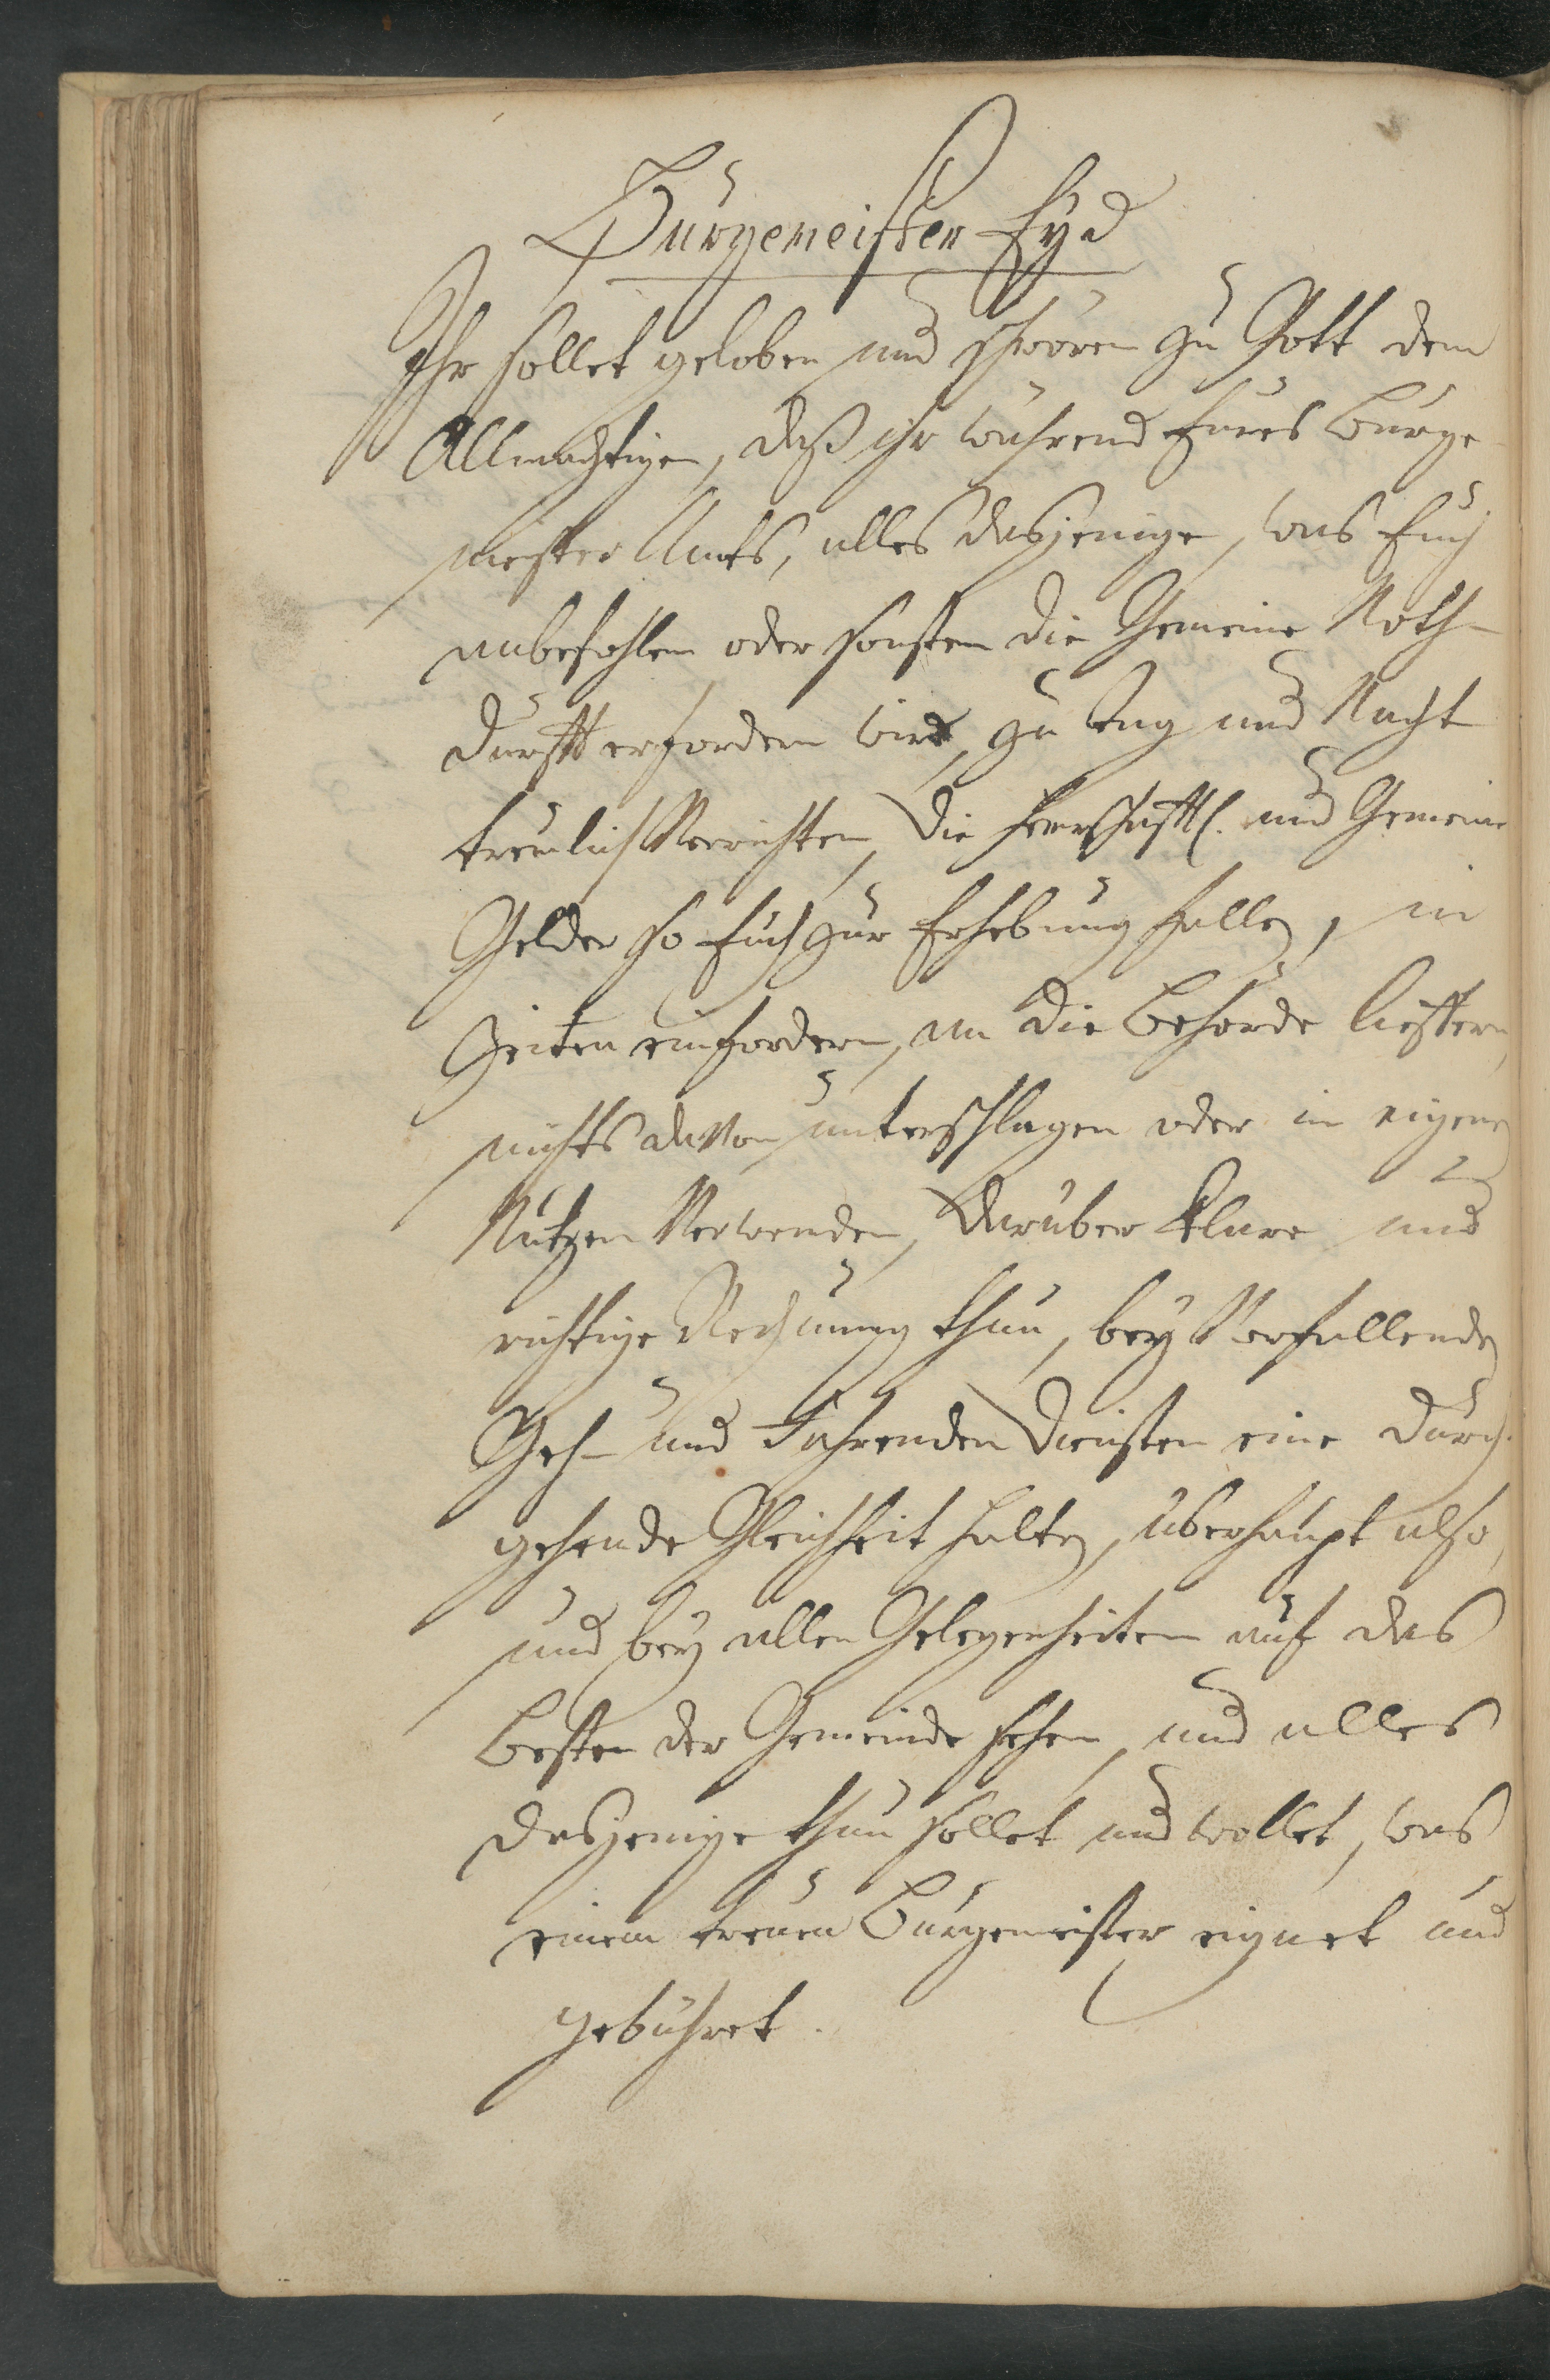 Burgemeister Eyd
Ihr sollet geloben und schwören zu Gott dem
Allmächtigen, daß ihr während Eures Burge-
meister Amts, alles dasjenige, was Euch
anbefohlen oder sonsten die Gemeine Noth-
durfft erfordern wird, zu tag und Nacht
treulich Verrichten, die Herrschafftl. und Gemeine
Gelder so Euch zur Erhebung fallen, in
Zeiten einfordern, an die Behörde lieffern,
nichts davon unterschlagen oder in eigenen
Nutzen Verwenden, darüber klare und
richtige Rechnung thun, bey Vorfallenden
Geh- und Fahrenden Diensten eine durch-
gehende Gleichheit halten, überhaupt also,
und bey allen Gelegenheiten auf das
besten der Gemeinde sehen, und alles
dasjenige thun sollet und wollet, was
einem treuen Burgemeister eignet und
gebühret.